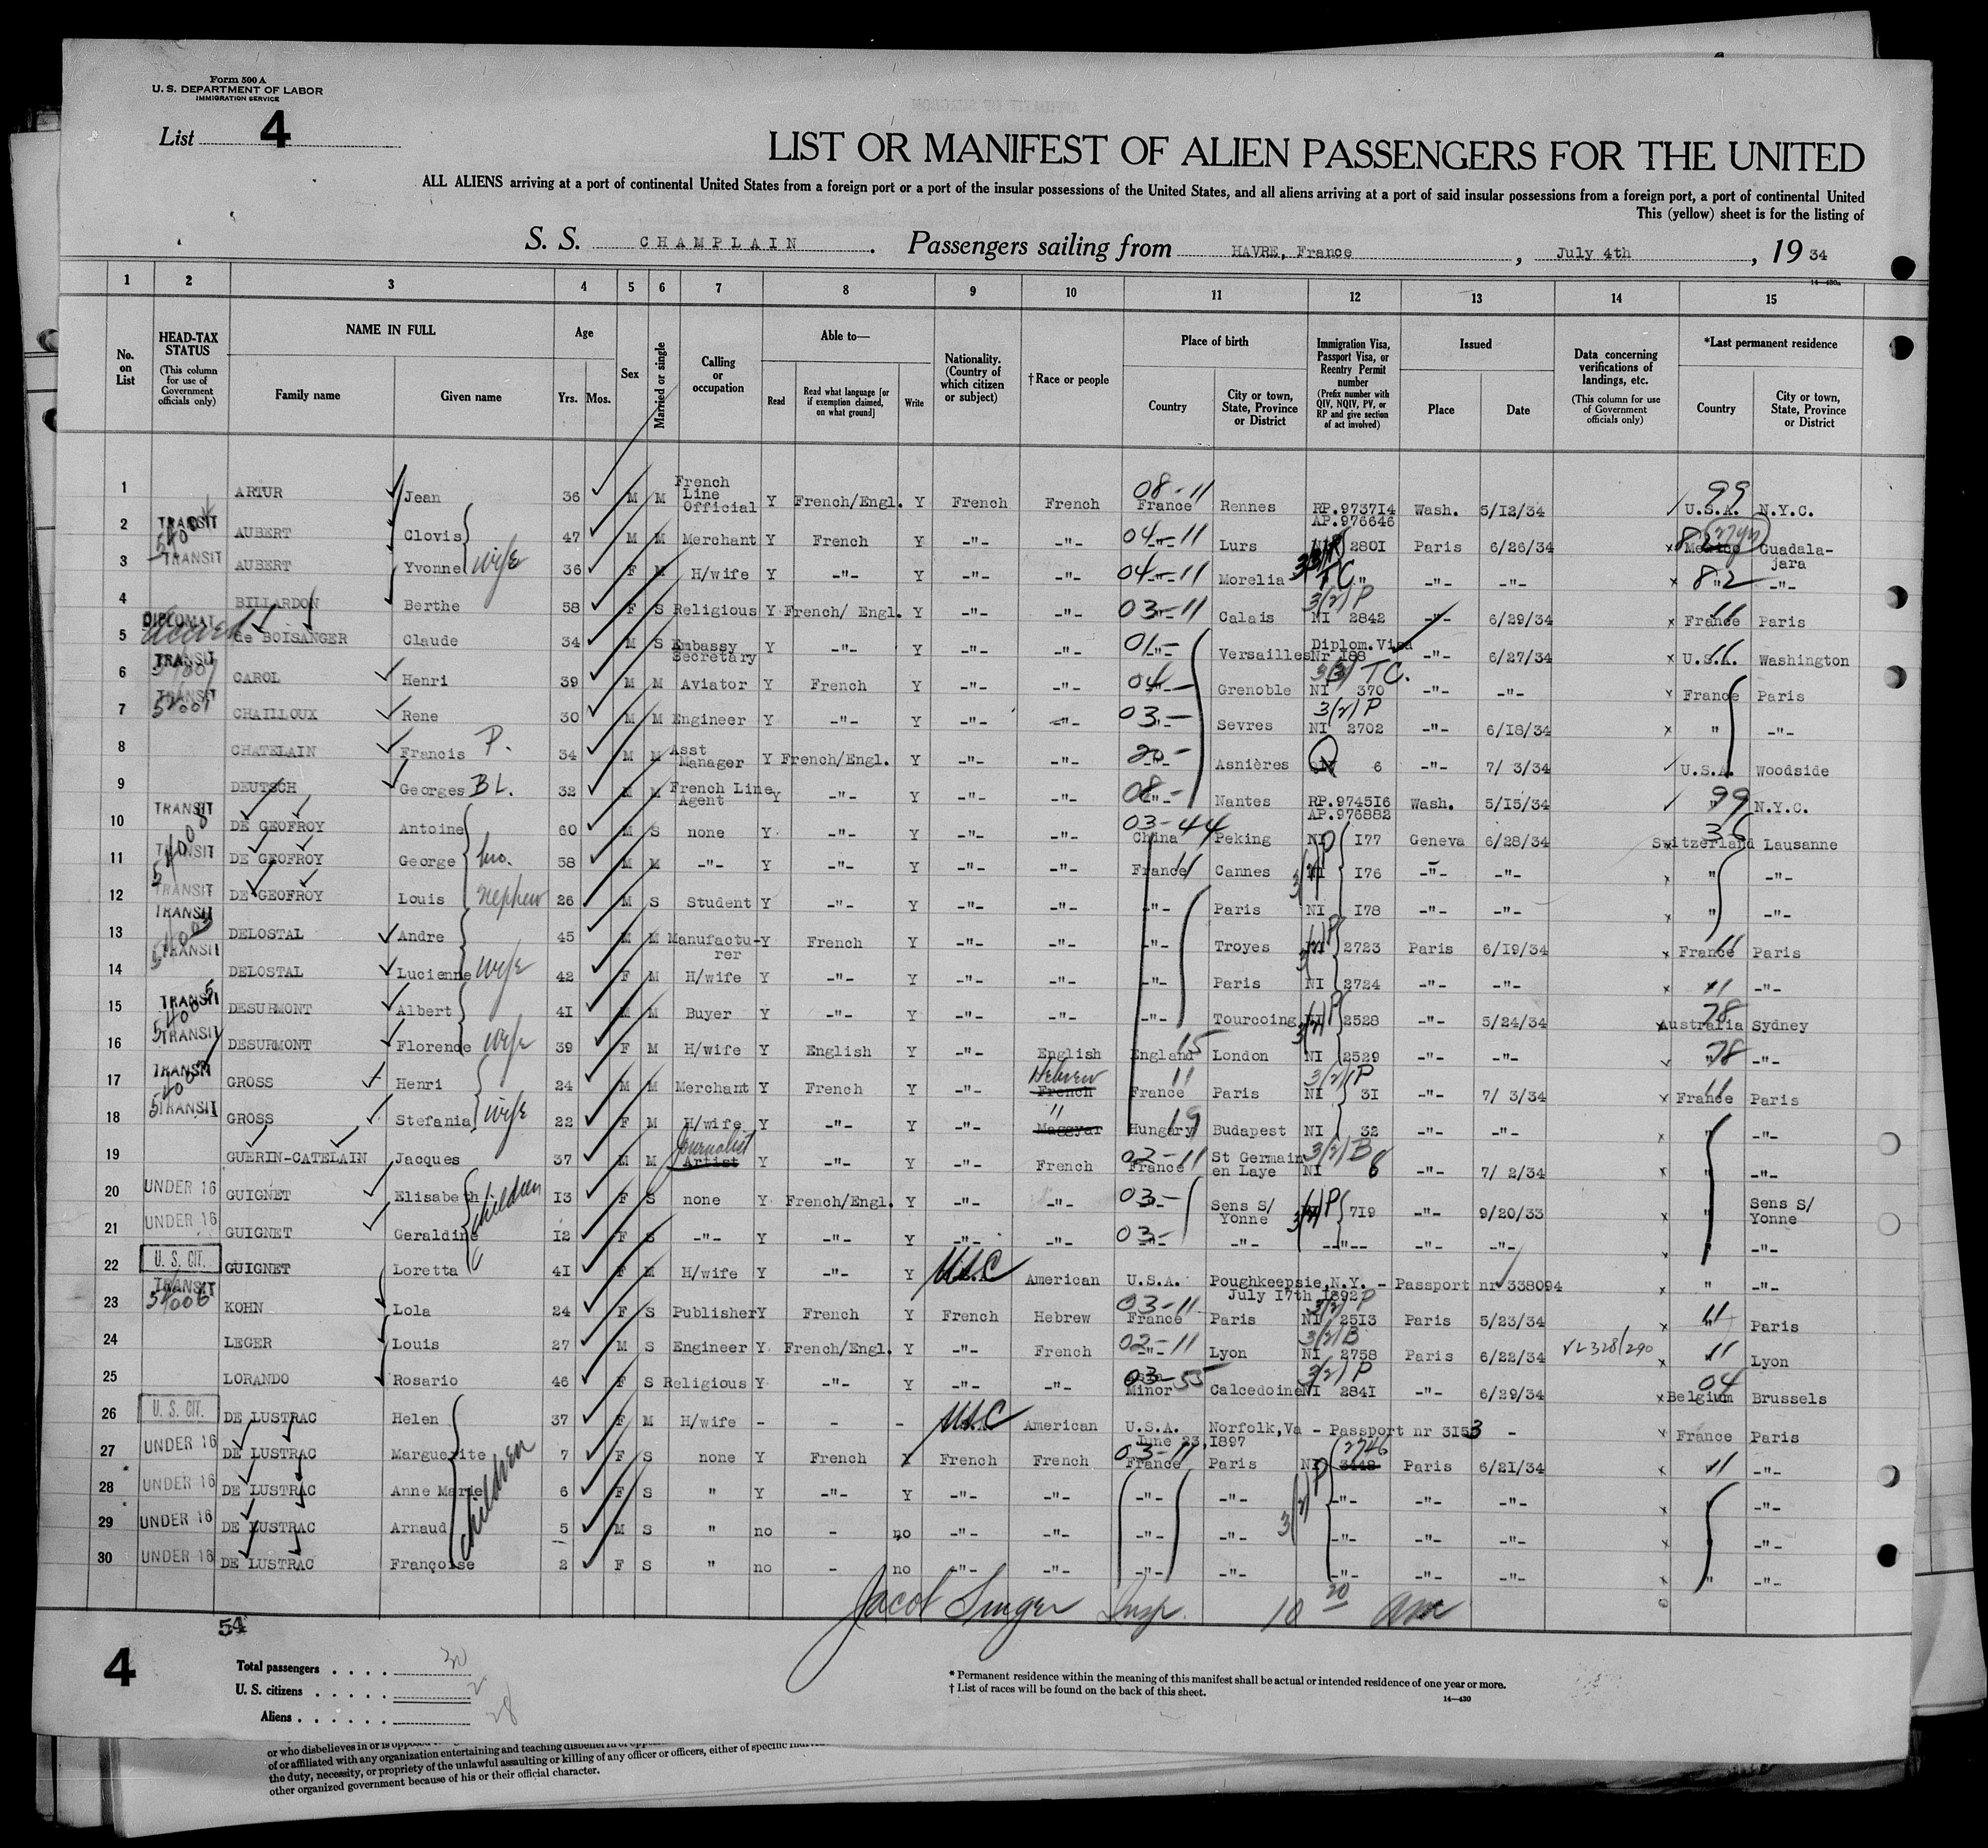 Form 500 A
U. S. DEPARTMENT OF LABOR
IMMIGRATION SERVICE
List 4
LIST OR MANIFEST OF ALIEN PASSENGERS FOR THE UNITED
ALL ALIENS arriving at a port of continental United States from a foreign port or a port of the insular possessions of the United States, and all aliens arriving at a port of said insular possessions from a foreign port, a port of continental United
This (yellow) sheet is for the listing of
S. S. CHAMPLAIN. Passengers sailing from HAVRE, France, July 4th, 1934
14—430a
1 2 3 4 5 6 7 8 9 10 11 12 13 14 15
No. on List
HEAD-TAX STATUS (This column for use of Government officials only)
NAME IN FULL Family name Given name
Age Yrs. Mos.
Sex
Married or single
Calling or occupation
Able to— Read Read what language [or if exemption claimed, on what ground] Write
Nationality. (Country of which citizen or subject)
†Race or people
Place of birth Country City or town, State, Province or District
Immigration Visa, Passport Visa, or Reentry Permit number (Prefix number with QIV, NQIV, PV, or RP and give section of act involved)
Issued Place Date
Data concerning verifications of landings, etc. (This column for use of Government officials only)
*Last permanent residence Country City or town, State, Province or District
1 ARTUR Jean 36 M M French Line Official Y French/Engl. Y French French 08-11 France Rennes RP.973714 AP.976646 Wash. 5/12/34 99 U.S.A. N.Y.C.
2 TRANSIT AUBERT Clovis 47 M M Merchant Y French Y -"- -"- 04-11 -"- Lurs 2801 Paris 6/26/34 Mexico Guadala-jara
3 TRANSIT AUBERT Yvonne wife 36 F M H/wife Y -"- Y -"- -"- 04-11 -"- Morelia TC " -"- -"- 82 " -"-
4 BILLARDON Berthe 58 F S Religious Y French/ Engl. Y -"- -"- 03-11 -"- Calais 3(2)P NI 2842 -"- 6/29/34 France 11 Paris
5 DIPLOMAT de BOISANGER Claude 34 M S Embassy Secretary Y -"- Y -"- -"- 01- -"- Versailles Diplom.Visa Nr 188 -"- 6/27/34 U.S.A. Washington
6 TRANSIT CAROL Henri 39 M M Aviator Y French Y -"- -"- 04- -"- Grenoble 3(3) TC. NI 370 -"- -"- France Paris
7 TRANSIT CHAILLOUX Rene 30 M M Engineer Y -"- Y -"- -"- 03- -"- Sevres 3(2)P NI 2702 -"- 6/18/34 " -"-
8 CHATELAIN Francis P. 34 M M Asst Manager Y French/Engl. Y -"- -"- 20- -"- Asnières 6 -"- 7/ 3/34 U.S.A. Woodside
9 DEUTSCH Georges BL. 32 M M French Line Agent Y -"- Y -"- -"- 08- -"- Nantes RP.974516 AP.976882 Wash. 5/15/34 99 " N.Y.C.
10 TRANSIT DE GEOFROY Antoine 60 M S none Y -"- Y -"- -"- 03-44 China Peking NI 177 Geneva 6/28/34 Switzerland Lausanne
11 TRANSIT DE GEOFROY George bro. 58 M M -"- Y -"- Y -"- -"- France 11 Cannes NI 176 -"- -"- " -"-
12 TRANSIT DE GEOFROY Louis nephew 26 M S Student Y -"- Y -"- -"- -"- Paris NI 178 -"- -"- " -"-
13 TRANSIT DELOSTAL Andre 45 M M Manufactu-rer Y French Y -"- -"- -"- Troyes NI 2723 Paris 6/19/34 France 11 Paris
14 TRANSIT DELOSTAL Lucienne wife 42 F M H/wife Y -"- Y -"- -"- -"- Paris NI 2724 -"- -"- 11 -"-
15 TRANSIT DESURMONT Albert 41 M M Buyer Y -"- Y -"- -"- -"- Tourcoing NI 2528 -"- 5/24/34 78 Australia Sydney
16 TRANSIT DESURMONT Florence wife 39 F M H/wife Y English Y -"- English England 15 London NI 2529 -"- -"- 78 " -"-
17 TRANSIT GROSS Henri 24 M M Merchant Y French Y -"- Hebrew French France 11 Paris 3(2)P NI 31 -"- 7/ 3/34 France 11 Paris
18 TRANSIT GROSS Stefania wife 22 F M H/wife Y -"- Y -"- " Magyar Hungary 19 Budapest NI 32 -"- -"- " -"-
19 GUERIN-CATELAIN Jacques 37 M M Journalist Artist Y -"- Y -"- French 02-11 France St Germain en Laye 3(2)B NI 8 -"- 7/ 2/34 " -"-
20 UNDER 16 GUIGNET Elisabeth children 13 F S none Y French/Engl. Y -"- -"- 03- -"- Sens S/ Yonne 719 -"- 9/20/33 " Sens S/ Yonne
21 UNDER 16 GUIGNET Geraldine 12 F S -"- Y -"- Y -"- -"- 03- -"- -"- -"- -"- -"- " -"-
22 U. S. CIT. GUIGNET Loretta 41 F M H/wife Y -"- Y U.S.C American U.S.A. Poughkeepsie,N.Y. - Passport nr 338094 July 17th 1892 " -"-
23 TRANSIT KOHN Lola 24 F S Publisher Y French Y French Hebrew 03-11 France Paris 3(2)P NI 2513 Paris 5/23/34 11 " Paris
24 LEGER Louis 27 M S Engineer Y French/Engl. Y -"- French 02-11 -"- Lyon 3(2)B NI 2758 Paris 6/22/34 VL328/290 11 " Lyon
25 LORANDO Rosario 46 F S Religious Y -"- Y -"- -"- 03-55 Asia Minor Calcedoine 3(2)P NI 2841 -"- 6/29/34 04 Belgium Brussels
26 U. S. CIT. DE LUSTRAC Helen 37 F M H/wife - - - U.S.C American U.S.A. Norfolk,Va - Passport nr 3153 - June 23,1897 France Paris
27 UNDER 16 DE LUSTRAC Marguerite children 7 F S none Y French Y French French 03-11 France Paris NI 2746 3148 Paris 6/21/34 11 -"-
28 UNDER 16 DE LUSTRAC Anne Marie 6 F S " Y -"- Y -"- -"- -"- -"- -"- -"- -"- -"-
29 UNDER 16 DE LUSTRAC Arnaud 5 M S " no - no -"- -"- -"- -"- -"- -"- -"- -"-
30 UNDER 16 DE LUSTRAC Françoise 2 F S " no - no -"- -"- -"- -"- -"- -"- -"- " -"-
Jacob Singer Insp. 10 20 am
54
4
Total passengers 30
U. S. citizens 2
Aliens 28
* Permanent residence within the meaning of this manifest shall be actual or intended residence of one year or more.
† List of races will be found on the back of this sheet.
14—430
of or affiliated with any organization entertaining and teaching disbelief in or
the duty, necessity, or propriety of the unlawful assaulting or killing of any officer or officers, either of specific
other organized government because of his or their official character.